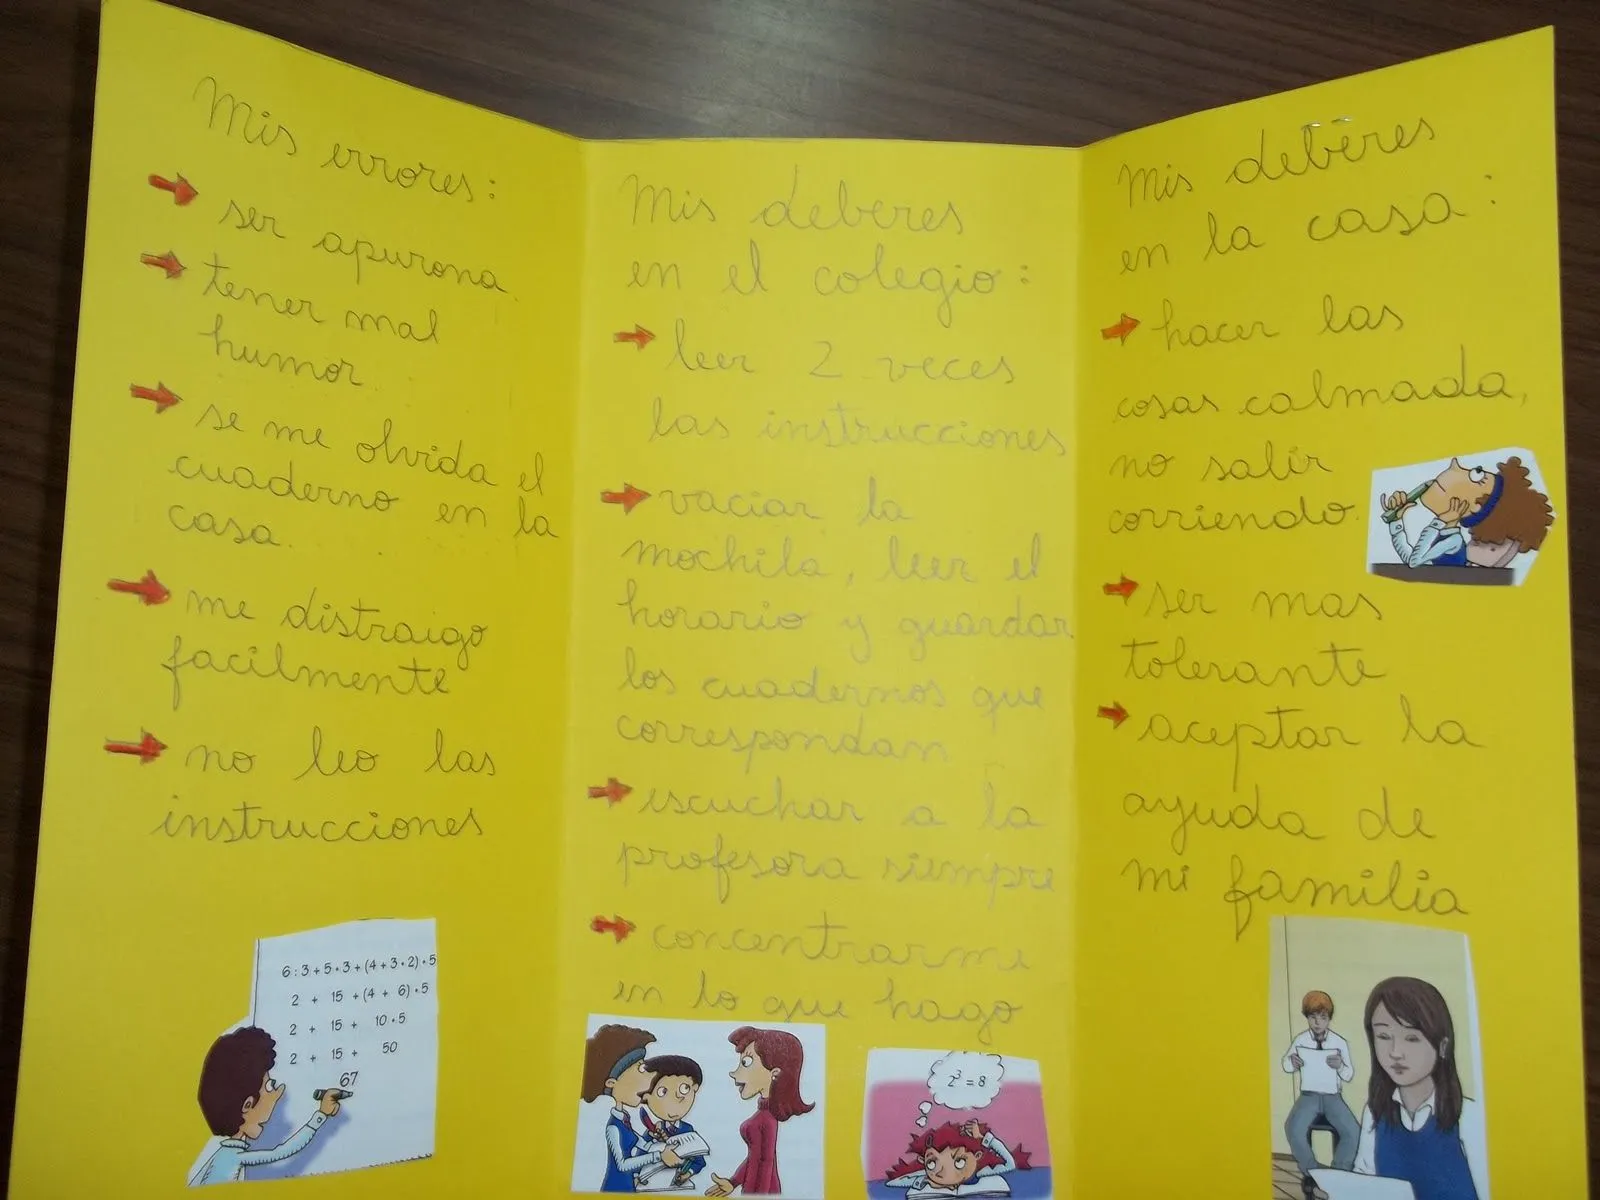 Mis errores:
ser apurona.
tener mal
humor.
se me olvida el
cuaderno en la
casa.
me distraigo
facilmente
no leo las
instrucciones
6:3+5•3+(4+3•2)•5
2 + 15 +(4 + 6)•5
2 + 15 + 10•5
2 + 15 + 50
67
Mis deberes
en el colegio:
leer 2 veces
las instrucciones
vaciar la
mochila, leer el
horario y guardar
los cuadernos que
correspondan
escuchar a la
profesora siempre
concentrarme
en lo que hago
2³=8
Mis deberes
en la casa:
hacer las
cosas calmada,
no salir
corriendo.
ser mas
tolerante
aceptar la
ayuda de
mi familia